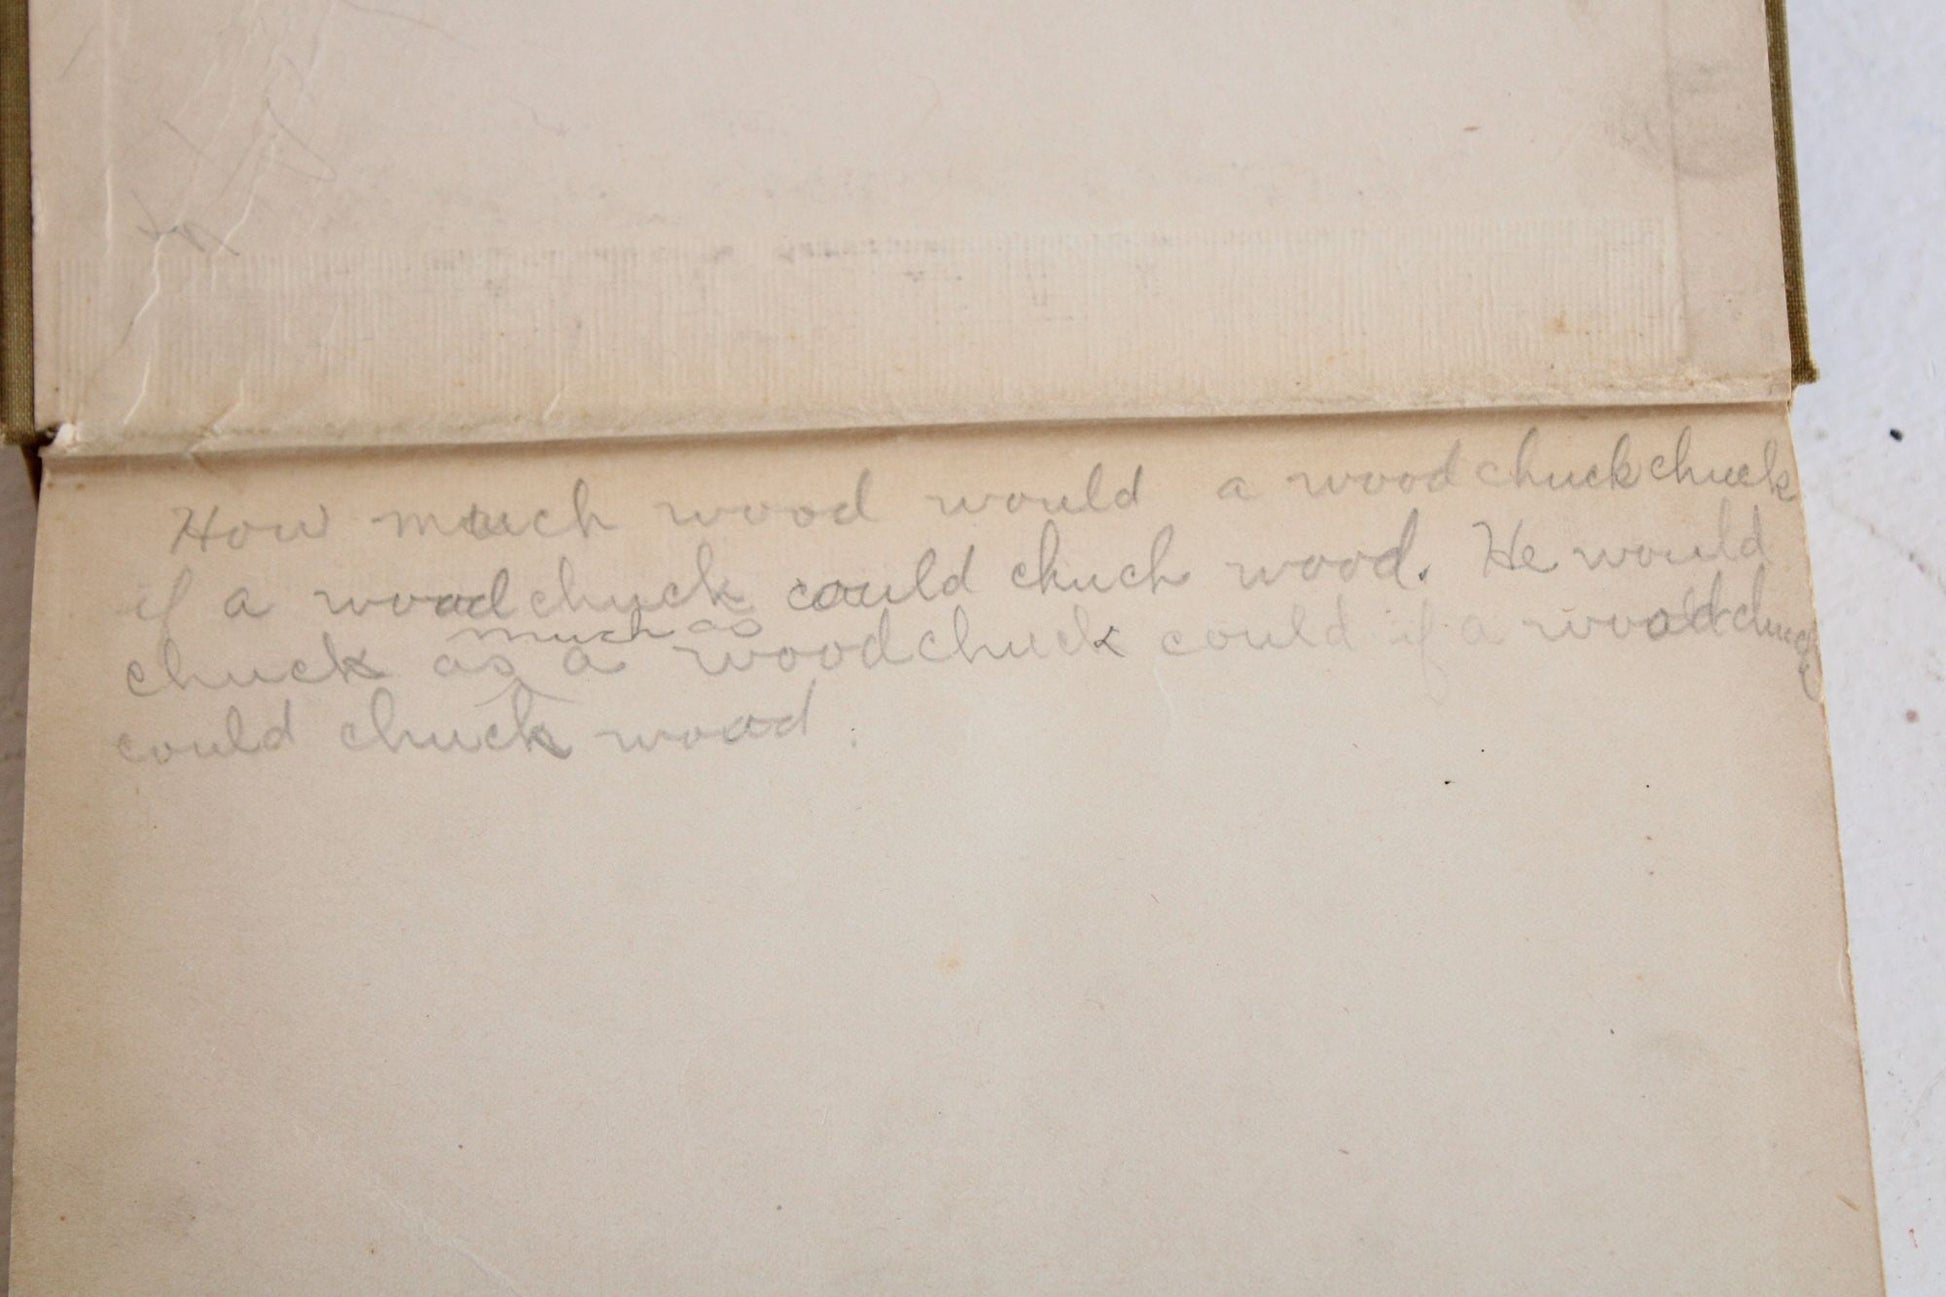 How much wood would a wood chuck chuck
if a woodchuck could chuch wood. He would
much as
chuck as a woodchuck could if a woodchuck
could chuck wood.